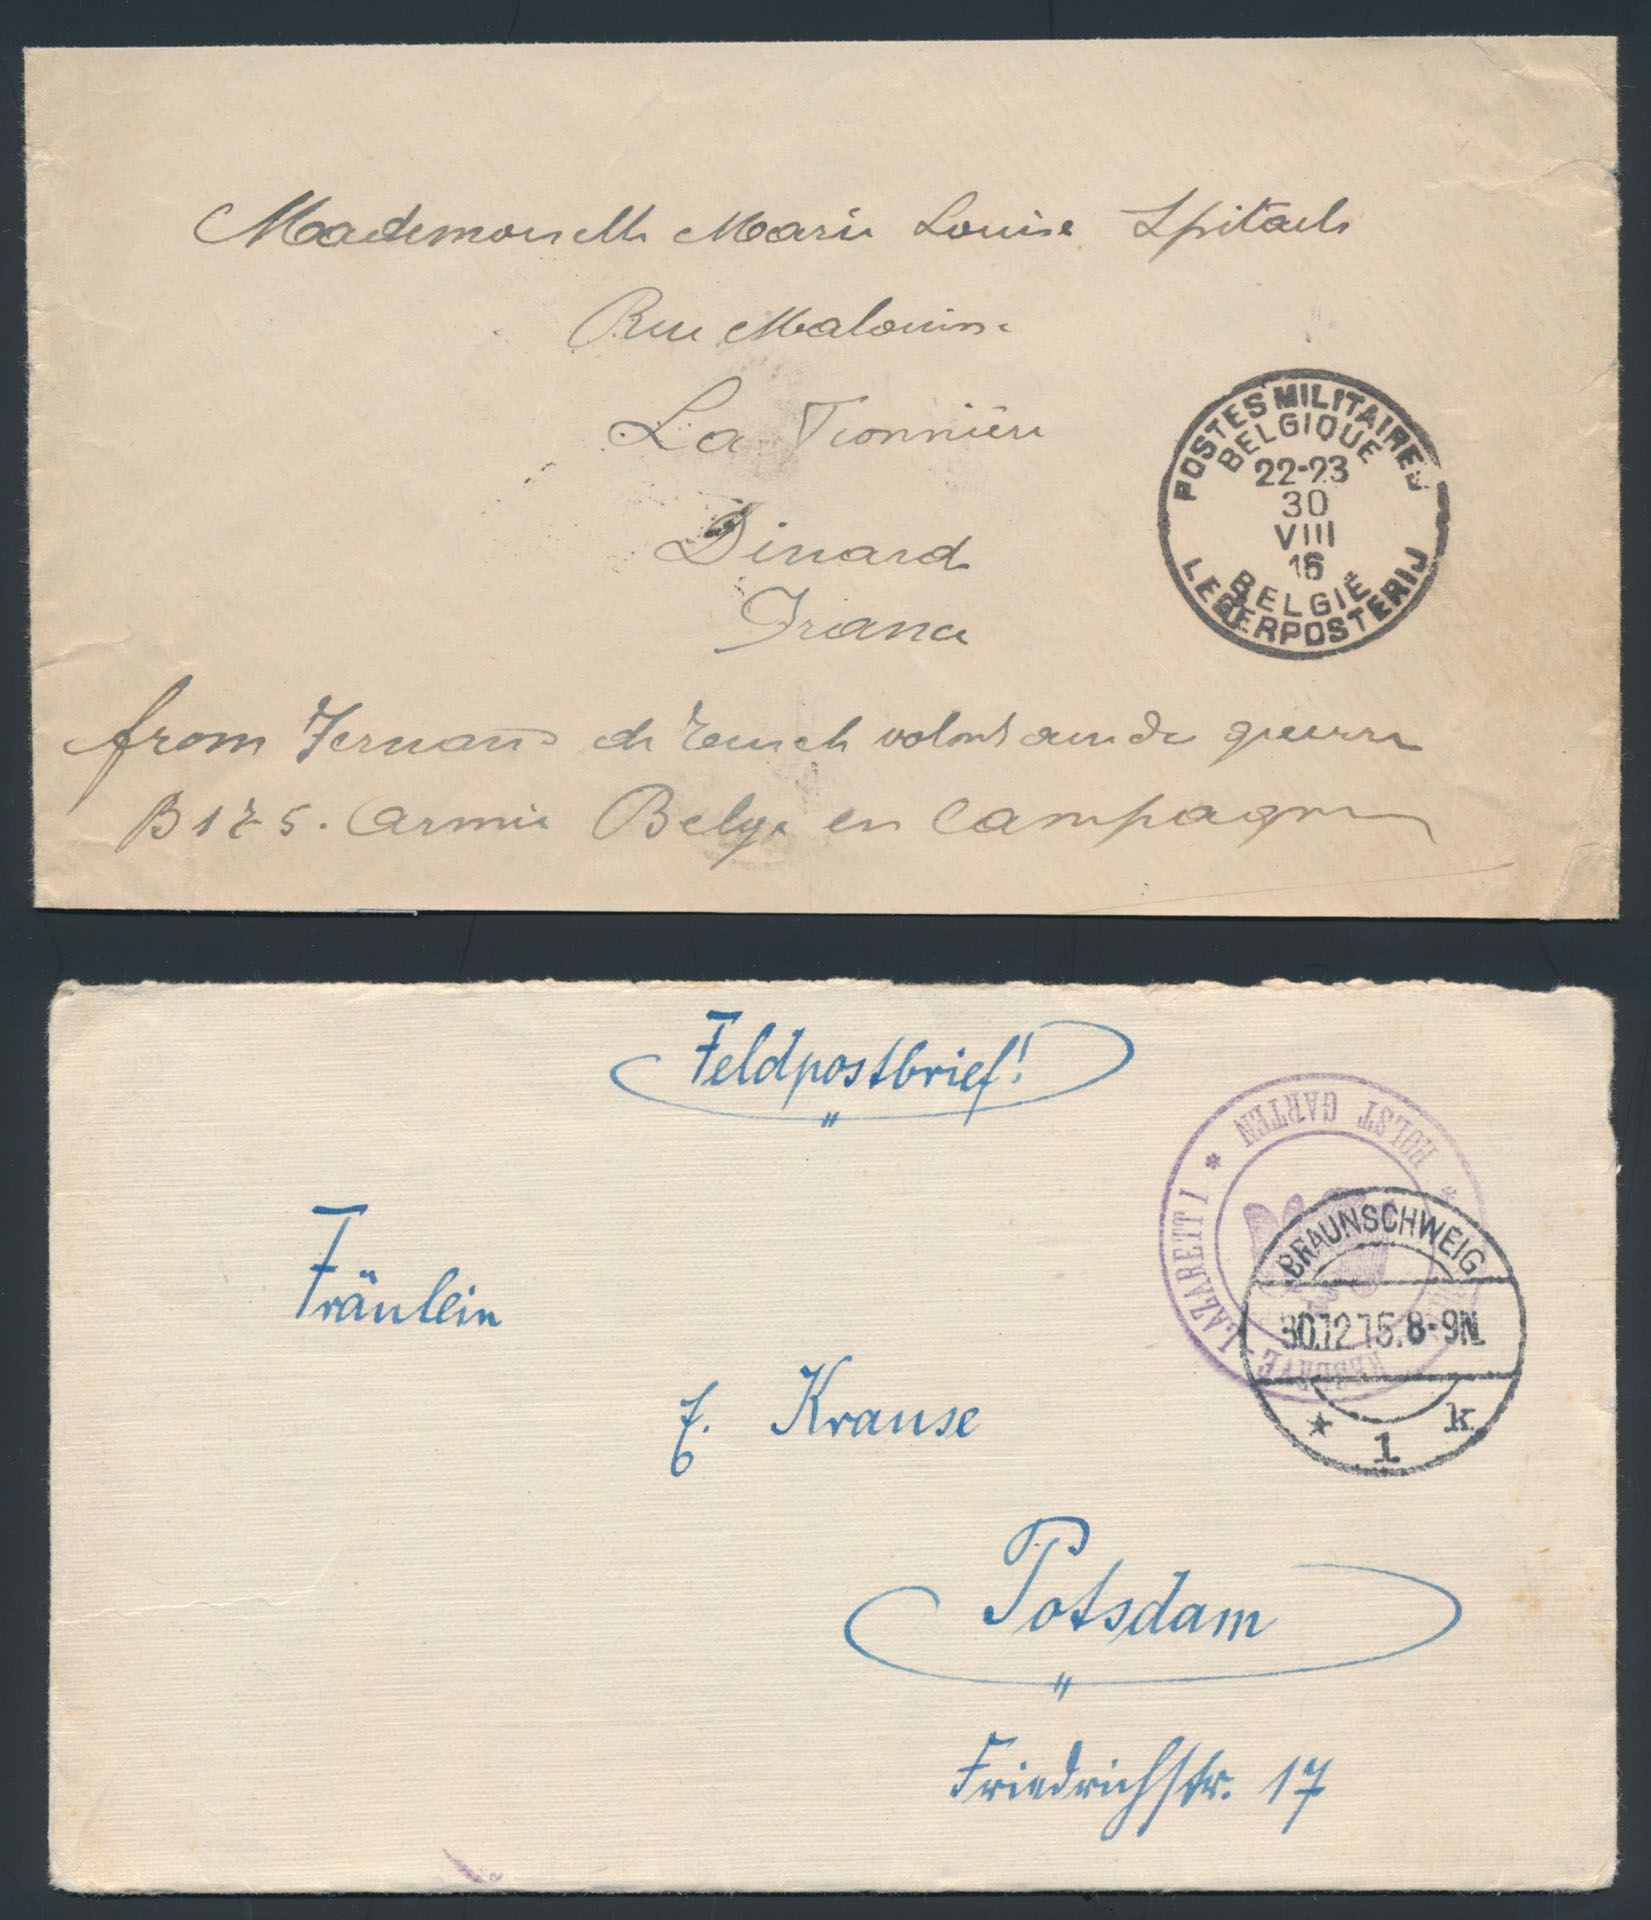 Mademoiselle Marie Louise Spitaels
Rue Malouine
La Vionnière
Dinard
France
POSTES MILITAIRES
BELGIQUE
22-23
30
VIII
16
BELGIË
LEGERPOSTERIJ
from Fernand volontaire de guerre
B175. Armée Belge en Campagne
Feldpostbrief!
HOLST GARTEN
RESERVE LAZARETT I
BRAUNSCHWEIG
30.12.15.8-9N.
* 1 k
Fräulein
E. Krause
Potsdam
Friedrichstr. 17